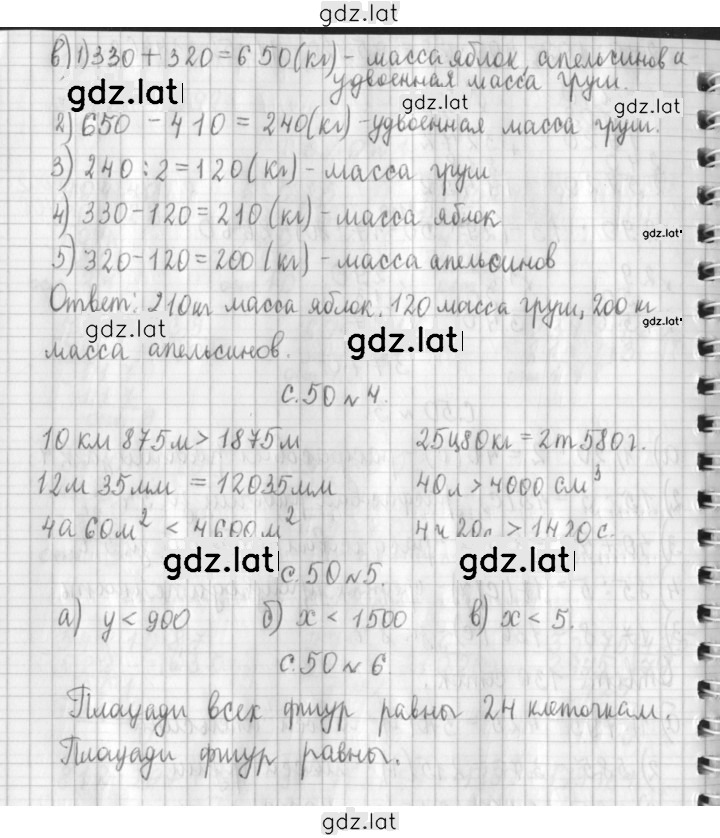 gdz.lat
в) 1) 330 + 320 = 650 (кг) - масса яблок, апельсинов и
удвоенная масса груш.
gdz.lat gdz.lat gdz.lat
2) 650 - 410 = 240 (кг) - удвоенная масса груш.
3) 240 : 2 = 120 (кг) - масса груш
4) 330 - 120 = 210 (кг) - масса яблок
gdz.lat
5) 320 - 120 = 200 (кг) - масса апельсинов
Ответ: 210 кг масса яблок, 120 масса груш, 200 кг
gdz.lat gdz.lat gdz.lat
масса апельсинов.
с. 50 № 4.
10 км 875 м > 1875 м 25 ц 80 кг = 2 т 580 г.
12 м 35 мм = 12035 мм 40 л > 4000 см³
4 а 60 м² < 4600 м² 4 ч 20 с > 1420 с.
gdz.lat gdz.lat
с. 50 № 5.
а) y < 900 б) x < 1500 в) x < 5.
с. 50 № 6
Площади всех фигур равны 24 клеточкам.
Площади фигур равны.
gdz.lat